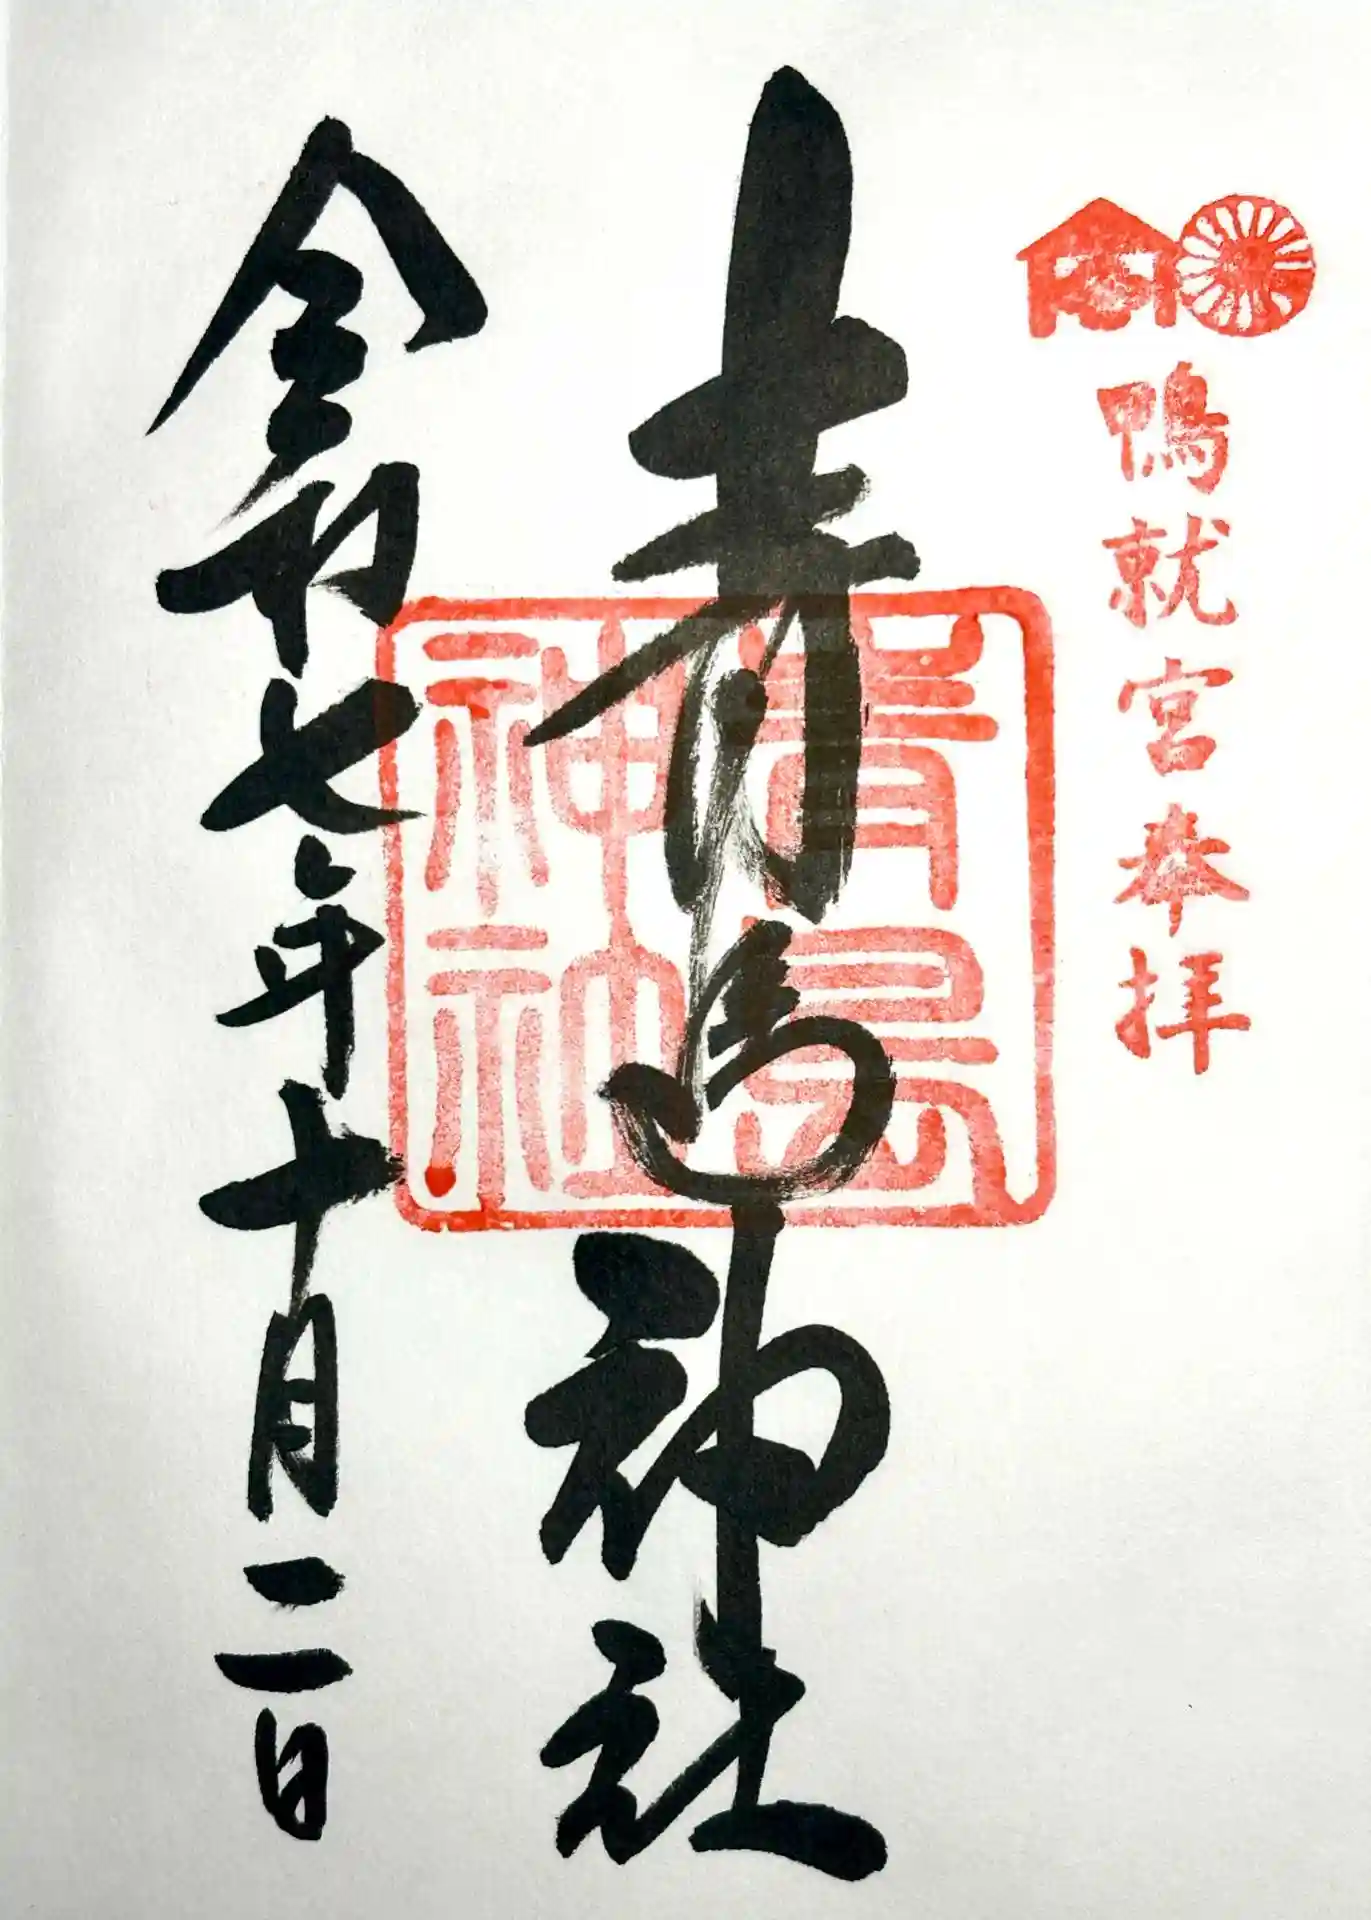 鴨就宮奉拝
青島神社
青島
神社
令和七年十月二日